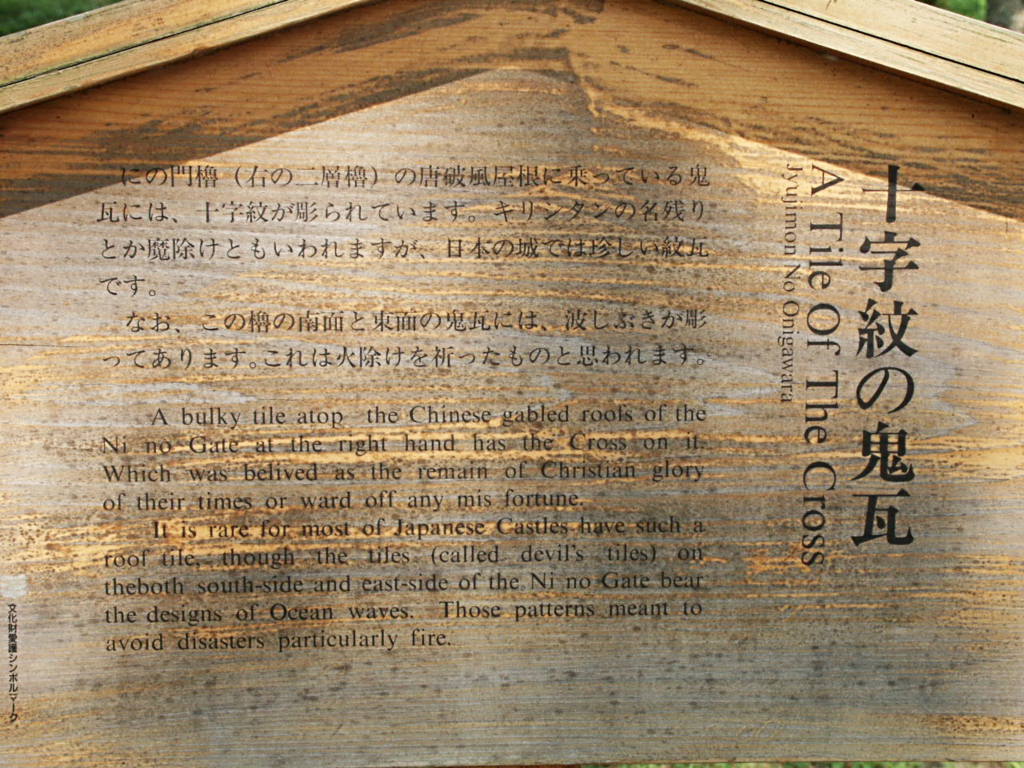 十字紋の鬼瓦
A Tile Of The Cross
Jyujimon No Onigawara
にの門櫓（右の二層櫓）の唐破風屋根に乗っている鬼
瓦には、十字紋が彫られています。キリシタンの名残り
とか魔除けともいわれますが、日本の城では珍しい紋瓦
です。
なお、この櫓の南面と東面の鬼瓦には、波しぶきが彫
ってあります。これは火除けを祈ったものと思われます。
A bulky tile atop the Chinese gabled roofs of the
Ni no Gate at the right hand has the Cross on it.
Which was belived as the remain of Christian glory
of their times or ward off any mis fortune.
It is rare for most of Japanese Castles have such a
roof tile, though the tiles (called devil's tiles) on
theboth south-side and east-side of the Ni no Gate bear
the designs of Ocean waves. Those patterns meant to
avoid disasters particularly fire.
文化財愛護シンボルマーク